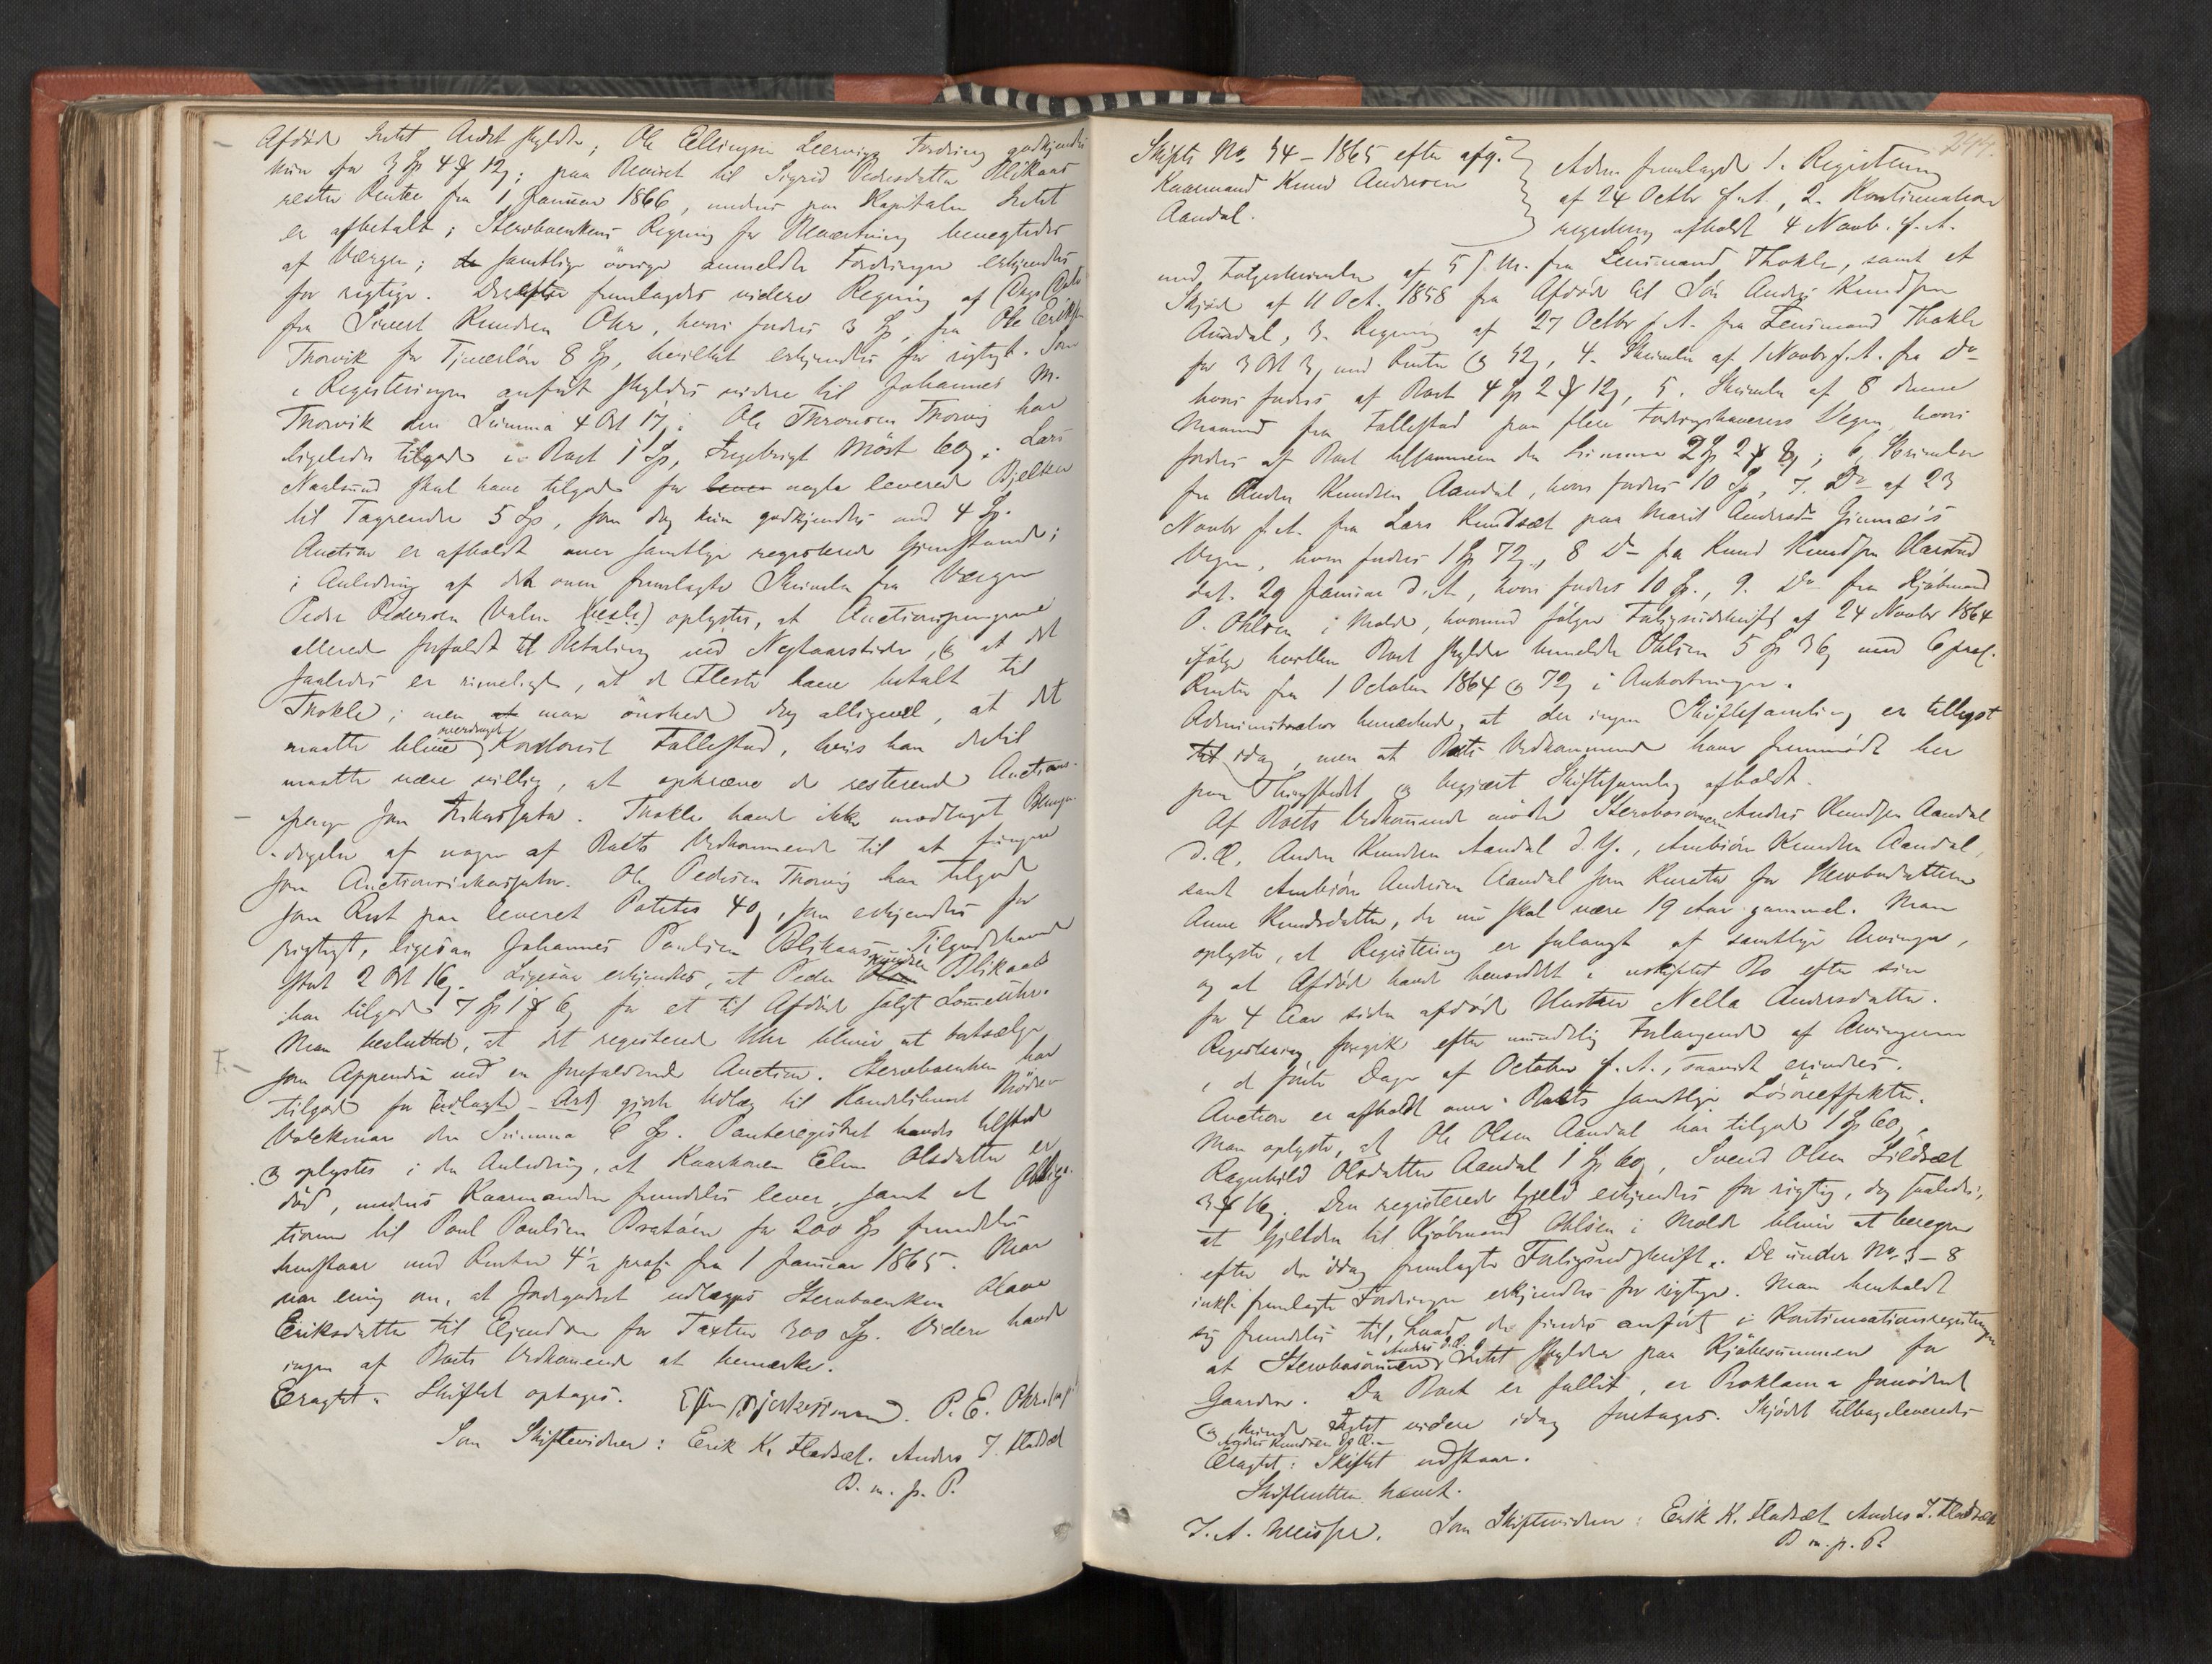 Afdöde Intet Andet skyldte; Ole Ellingsen Leervigs Fordring godkjendtes
kun for 3 Sp 4 ₰ 12 ; paa Beviset til Sigrid Pedersdatter Blikaas
rester Renter fra 1 Januar 1866, medens paa Kapitalen Intet
er afbetalt; Stervboenkens Regning for Bevertning benegtedes
af Værgen; de samtlige övrige anmeldte Fordringer erkjendtes
for rigtige. Derefter fremlagdes videre Regning af Dags Dato
fra Sivert Knudsen Ohr, hvori fordres 3 Sp, fra Ole Erikss
Thorvik for Tjenerlön 8 Sp, hvilket erkjendtes for rigtigt. Som
i Registeringen anfört skyldes videre til Johannes M.
Thorvik den Summa 4 Ort 17 ; Ole Thronsen Thorvig har
ligeledes tilgode i Boet 1 Sp, Ingebrigt Möst 60 ; Lars
Naalsund skal have tilgode for nogle leverede Bjelker
til Tagrender 5 Sp, som dog kun godkjendtes med 4 Sp.
Auction er afholdt over samtlige registerede Gjenstande;
i Anledning af det oven fremlagte Skrivelse fra Værgen
Peder Pedersen Valen (vesle) oplystes, at Auctionspengene
allerede forfaldt til Betaling ved Nytaarstider, og at det
saaledes er rimeligt, at de Fleste have betalt til
Thokle; men man önskede dog alligevel, at det
maatte blive overdraget Kordonist Tallestad, hvis han dertil
maatte være villig, at opkræve de resterende Auctions-
penge som Inkassator. Thokle havde ikke modtaget Bemyn-
digelse af nogen af Boets Vedkommende til at fungere
som Auctionsinkassator. Ole Pedersen Thorvig har tilgode
som Rest paa leveret Potetes 40 , som erkjendtes for
rigtigt, ligesaa Johannes Paulsen Blikaas Tilgodehavende
stort 2 Ort 16 . Ligesaa erkjendtes, at Peder Knudsen Blikaas
har tilgode 7 Sp 1 ₰ 6 for et til Afdöde solgt Lommeuhr.
Man besluttede, at det registerede Uhr bliver at bortsælge
som Appendix ved en forefaldende Auction. Stervboenken har
tilgode for (udlagte - Art) gjorte Udlæg til Handelshuset Brödrene
Volckmar den Summa 6 Sp. Panteregistret havdes tilstede
og oplystes i den Anledning, at Kaarkonen Eli Olsdatter er
död, medens Kaarmanden fremdeles lever, samt at Obliga-
tionen til Paul Paulsen Brataas for 200 Sp fremdeles
henstaar med Renter 4½ pros. fra 1 Januar 1865. Man
var enig om, at Jordegodset udlægges Stervboenken Olava
Eriksdatter til Eiendom for Taxten 300 Sp. Videre havde
ingen af Boets Vedkommende at bemærke.
Eragtet: Skiftet optages. P. E. Ohr.
Som Skiftevidner: Erik K. Hadsæt. Anders J. Hadsæt
B. m. p. P.
244.
Skifte No. 54 - 1865 efter afg.
Kaarmand Knud Andersen
Aandal.
Adm. fremlagde 1. Registering
af 24 Octbr f. A., 2. Kontinuations
registering afholdt 4 Novb. f. A.
med Fölgeskrivelse af 5 s. M. fra Lensmand Thokle, samt et
Skjöde af 11 Oct. 1858 fra Afdöde til Sön Anders Knudsen
Aandal, 3. Regning af 27 Octbr f. A. fra Lensmand Thokle
for 3 Ort 3, med Renter og 52 , 4. Skrivelse af 1 Novbr f. A. fra Do
hvori fordres af Boet 4 Sp 2 ₰ 12 , 5. Skrivelse af 8 denne
Maaned fra Tallestad paa flere Fordringshaveres Vegne, hvori
fordres af Boet tilsammen den Summa 2 Sp 2 ₰ 8 ; 6, Skrivelse
fra Anders Knudsen Aandal, hvori fordres 10 Sp, 7. Do af 23
Novbr f. A. fra Lars Knudsæt paa Marit Andersdr Gimnæs's
Vegne, hvori fordres 1 Sp 72 , 8 Do fra Knud Knudsen Harstad
dat. 29 Januar d. A., hvori fordres 10 Sp., 9. Do fra Kjöbmand
O. Ohlsen i Molde, hvormed fölger Forligsudskrift af 24 Novbr 1864
ifölge hvilken Boet skylder bemeldte Ohlsen 5 Sp 36 med 6 pros.
Renter fra 1 October 1864 og 72 i Omkostninger.
Administrator bemærkede, at der ingen Skiftesamling er tillyst
til idag, men at Boets Vedkommende have fremmödt her
paa Thingstedet og begjært Skiftesamling afholdt.
Af Boets Vedkommende mödte Stervbosönnen Anders Knudsen Aandal
d. Æ. Anders Knudsen Aandal d. Y., Ambiörn Knudsen Aandal,
samt Ambiörn Andersen Aandal som Kurator for Stervbodatteren
Anne Knudsdatter, der nu skal være 19 Aar gammel. Man
oplyste, at Registering er forlangt af samtlige Arvinger,
og at Afdöde havde hensiddet i uskiftet Bo efter sin
for 4 Aar siden afdöde Hustru Nella Andersdatter.
Registering foregik efter mundtlig Forlangende af Arvingerne
i de förste Dage af October f. A., saavidt erindres.
Auction er afholdt over Boets samtlige Lösöreeffekter.
Man oplyste, at Ole Olsen Aandal har tilgode 1 Sp 60 ,
Ragnhild Olsdatter Aandal 1 Sp 60 , Svend Olsen Lildsæt
3 ₰ 16 . Den registerede Gjeld erkjendtes for rigtig, dog saaledes,
at Gjelden til Kjöbmand Ohlsen i Molde bliver at beregne
efter den idag fremlagte Forligsudskrift. De under No. 3 - 8
inkl. fremlagte Fordringer erkjendtes for rigtige. Man henholdt
sig fremdeles til, hvad der findes anfört i Kontinuationsregisteringen
at Stervbosönnen Anders d. Æ. Intet skylder paa Kjöbesummen for
Gaarden. Da Boet er fallit, er Proklama fornödent
og kunde Intet videre idag foretages. Skjödet tilbageleveredes
Anders Knudsen d. Æ.
Eragtet: Skiftet udstaar.
Skifteretten hævet.
J. A. Meisse. Som Skiftevidner: Erik K. Hadsæt Anders J. Hadsæt
B. m. p. P.